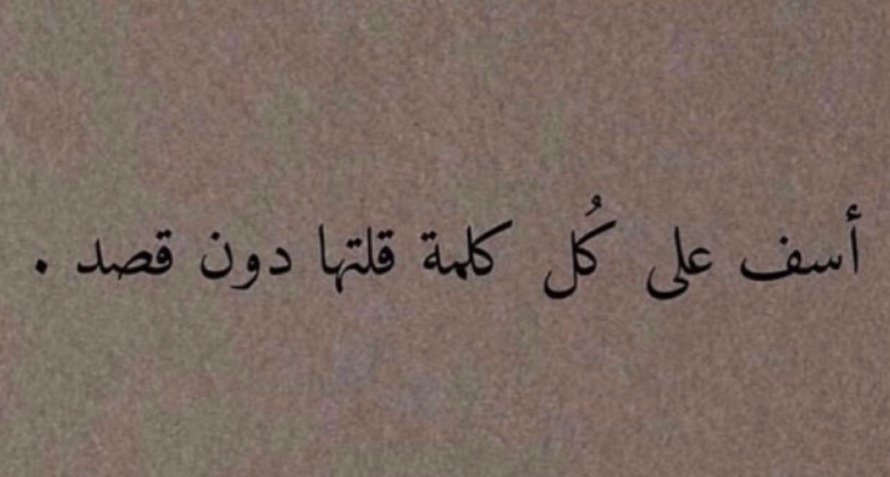 أسف على كُل كلمة قلتها دون قصد .